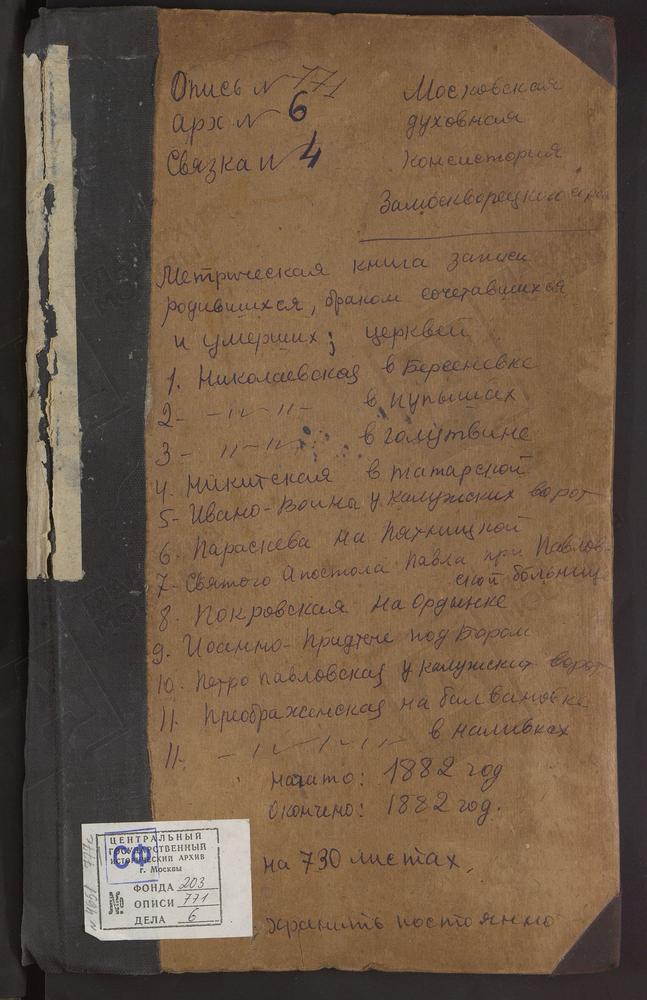 Опись № 771
арх № 6
Связка № 4
Московская
духовная
Консистория
Замоскворецкого
Метрическая книга записи
родившихся, браком сочетавшихся
и умерших; церквей
1. Николаевская в Берсеневке
2- -"- "- в пупышах
3- "-"- в голутвине
4. Никитская в татарской
5- Ивано-Воина у калужских ворот
6. Параскева на Пятницкой
7- Святого Апостола Павла при Павлов-
ской больнице
8. Покровская на Ордынке
9. Иоанно-Придтече под Бором
10. Петро павловская у калужских ворот
11. Преображенская на болвановке
11. -"-"- в наливках
начато: 1882 год
Окончено: 1882 год.
на 730 листах,
хранить постоянно
ЦЕНТРАЛЬНЫЙ
ГОСУДАРСТВЕННЫЙ
ИСТОРИЧЕСКИЙ АРХИВ
г. Москвы
СФ
ФОНДА 203
ОПИСИ 771
ДЕЛА 6